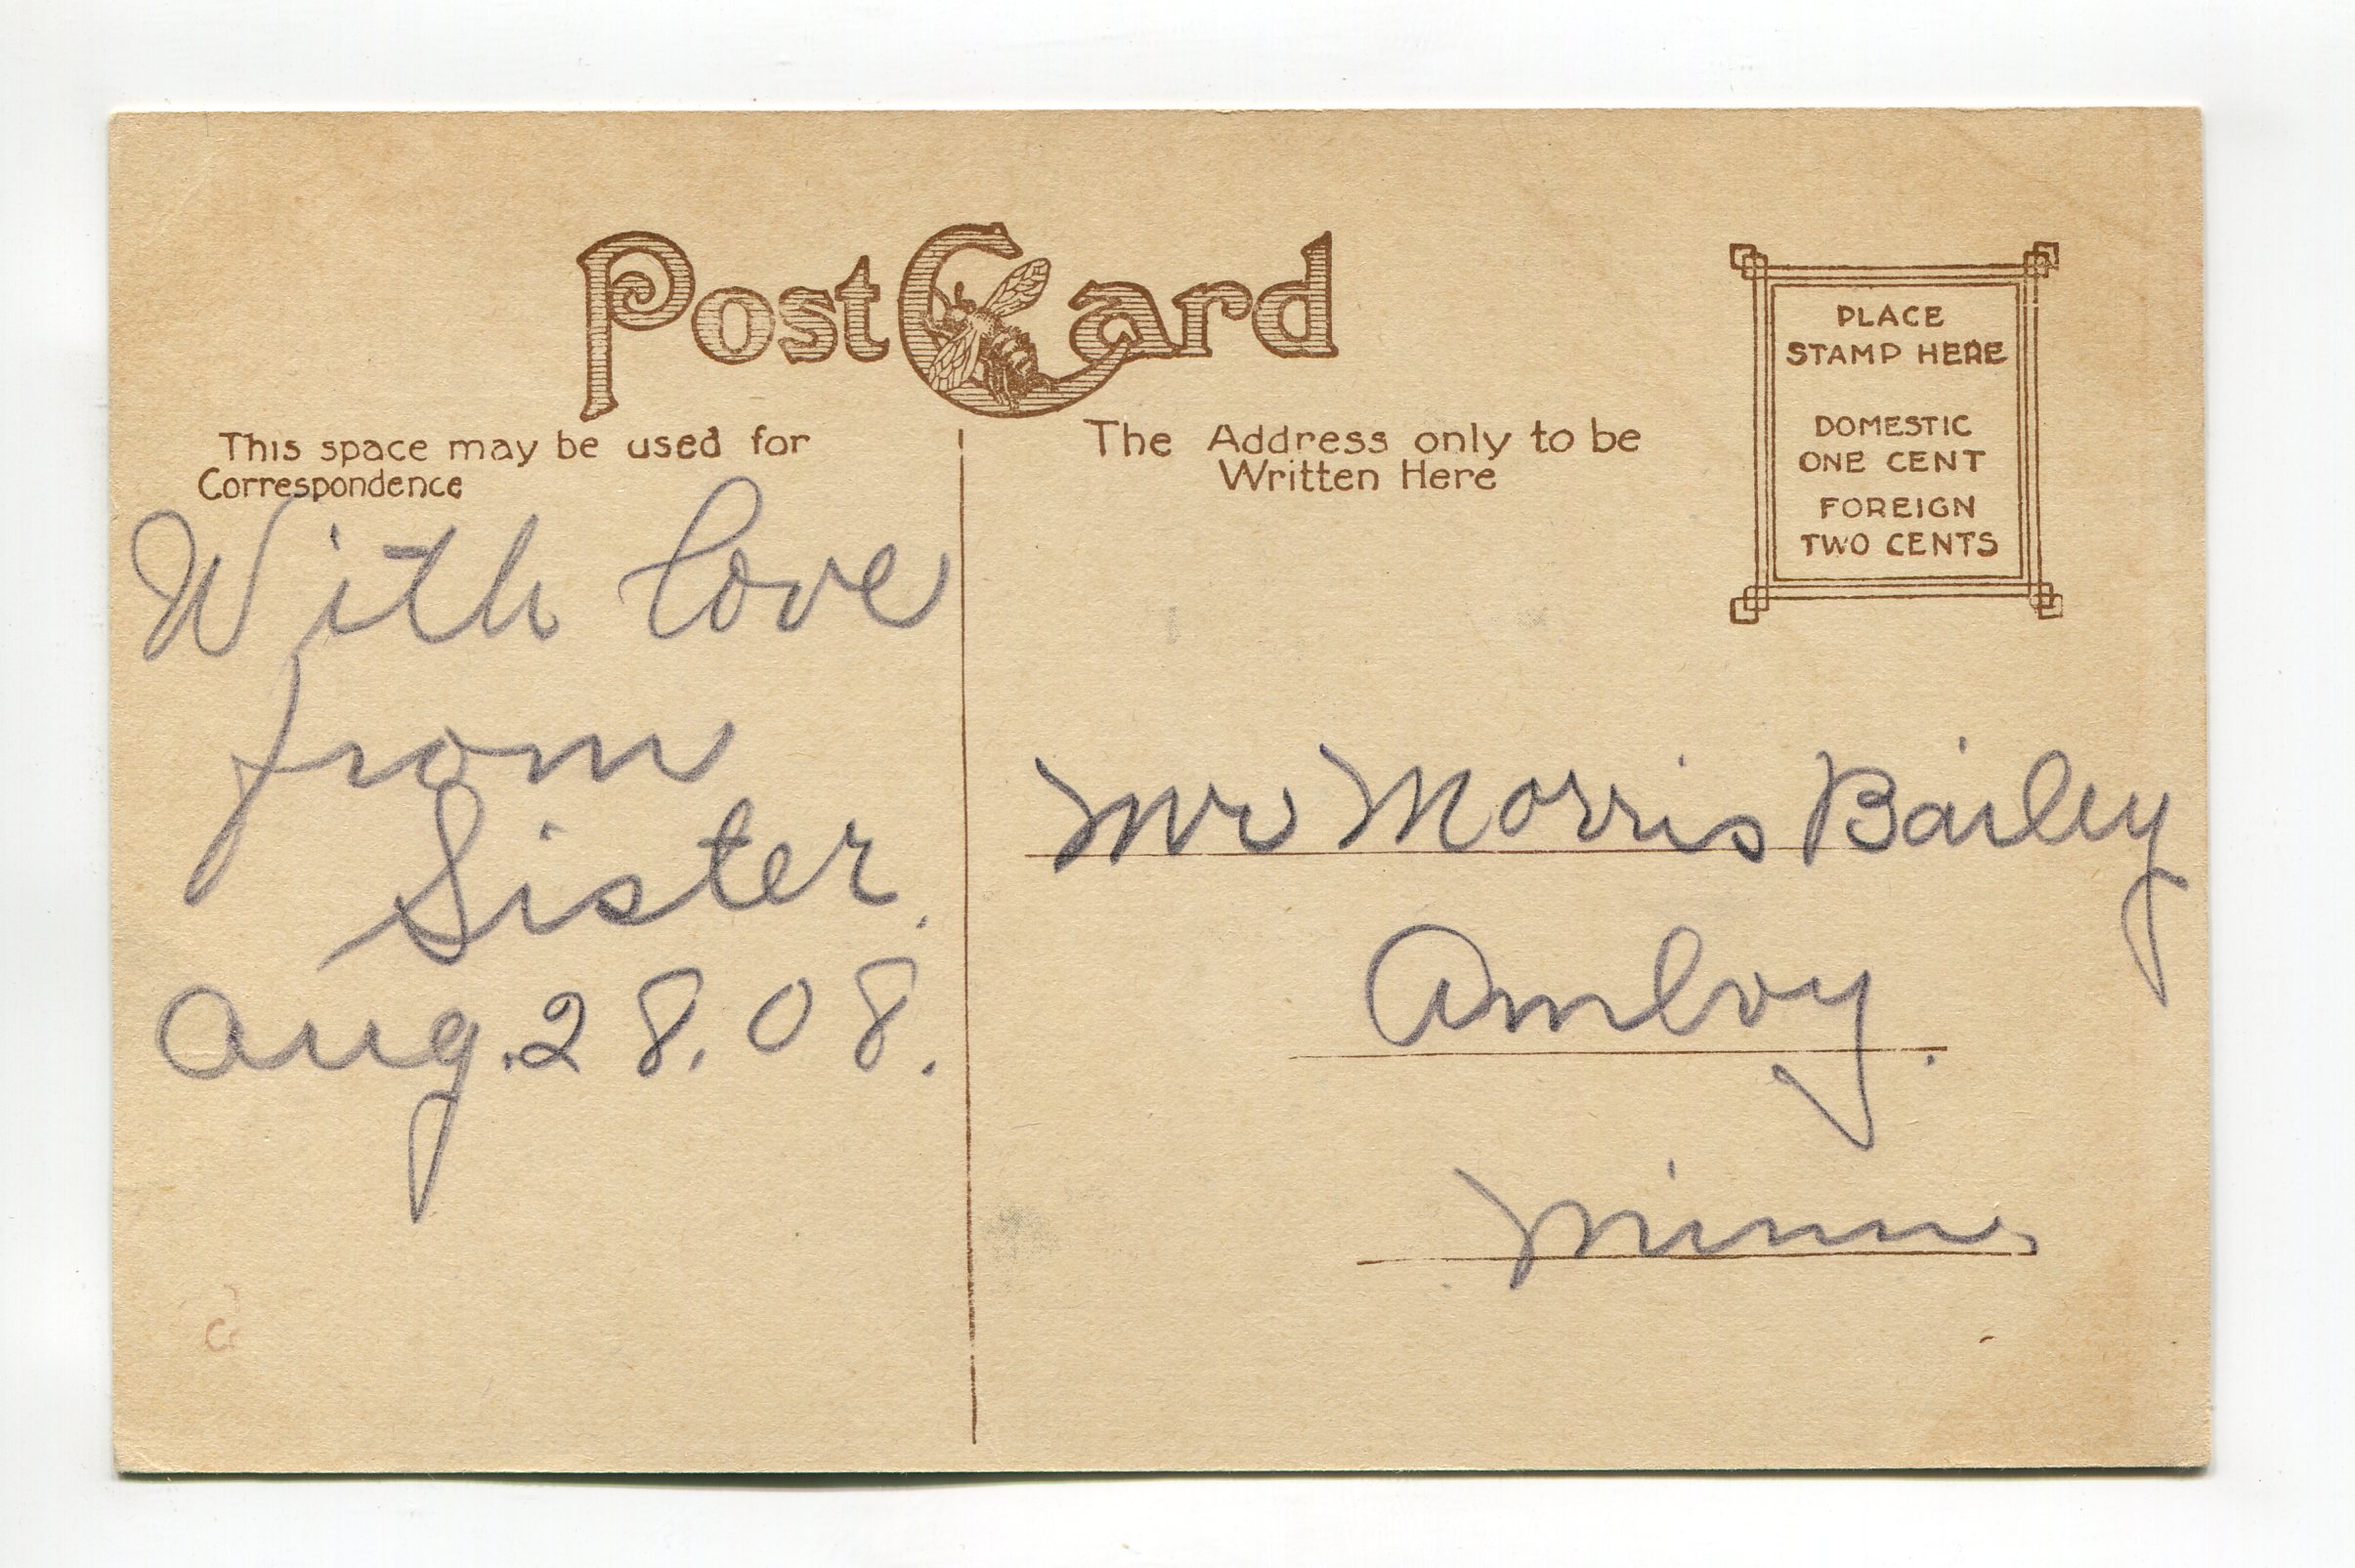 Post Card
This space may be used for
Correspondence
The Address only to be
Written Here
PLACE
STAMP HERE
DOMESTIC
ONE CENT
FOREIGN
TWO CENTS
With love
from
Sister.
Aug. 28. 08.
Mr Morris Bailey
Amboy.
Minn.